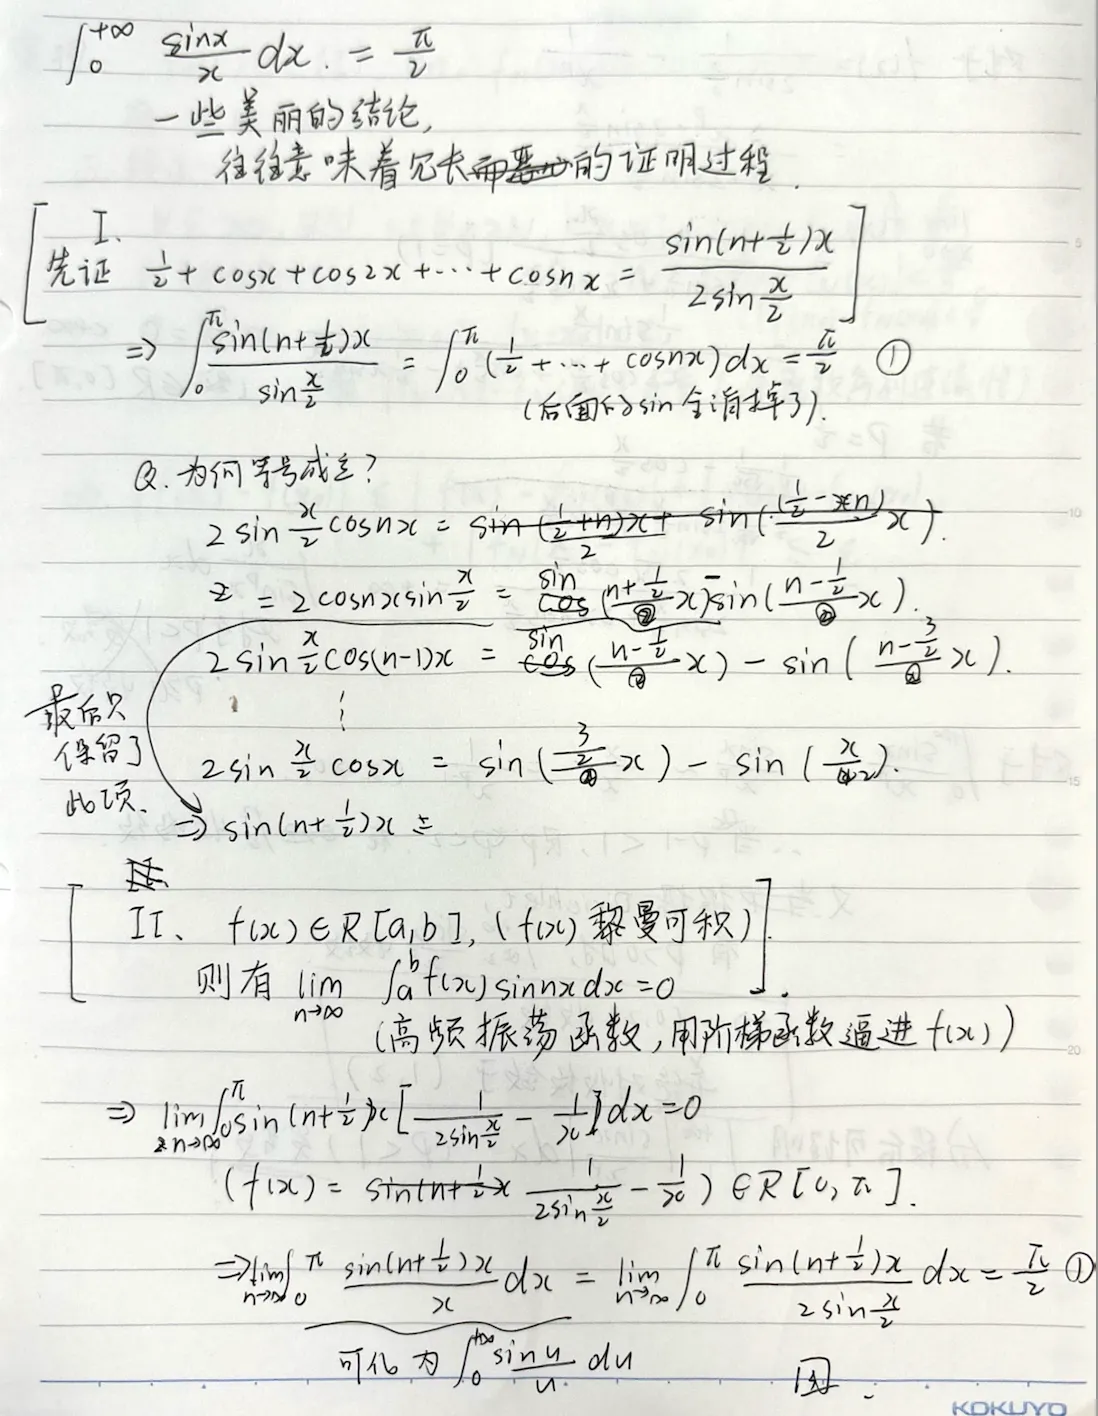 ∫₀^{+∞} sinx/x dx. = π/2
一些美丽的结论,
往往意味着冗长而恶心的证明过程.
I.
先证 1/2 + cosx + cos2x + ⋯ + cosnx = sin(n+1/2)x / 2sin x/2
⇒ ∫₀^π sin(n+1/2)x / sin x/2 = ∫₀^π (1/2 + ⋯ + cosnx) dx = π/2 ①
(后面的sin全消掉了).
Q. 为何等号成立?
2 sin x/2 cosnx = sin (1/2+n)x/2 + sin((1/2-n)/2 x).
= 2cosnx sin x/2 = sin(n+1/2 x) - sin(n-1/2 x).
2 sin x/2 cos(n-1)x = sin(n-1/2 x) - sin(n-3/2 x).
⋮
2 sin x/2 cosx = sin(3/2 x) - sin(x/2).
最后只
保留了
此项.
⇒ sin(n+1/2)x =
II、 f(x)∈R[a,b], (f(x)黎曼可积).
则有 lim n→∞ ∫ₐᵇ f(x) sinnx dx = 0
(高频振荡函数,用阶梯函数逼进f(x))
⇒ lim n→∞ ∫₀^π sin(n+1/2)x [1/2sin x/2 - 1/x] dx = 0
(f(x) = sin(n+1/2)x 1/2sin x/2 - 1/x) ∈R[0,π].
⇒ lim n→∞ ∫₀^π sin(n+1/2)x / x dx = lim n→∞ ∫₀^π sin(n+1/2)x / 2sin x/2 dx = π/2 ①
可化为 ∫₀^{+∞} sinu/u du
KOKUYO